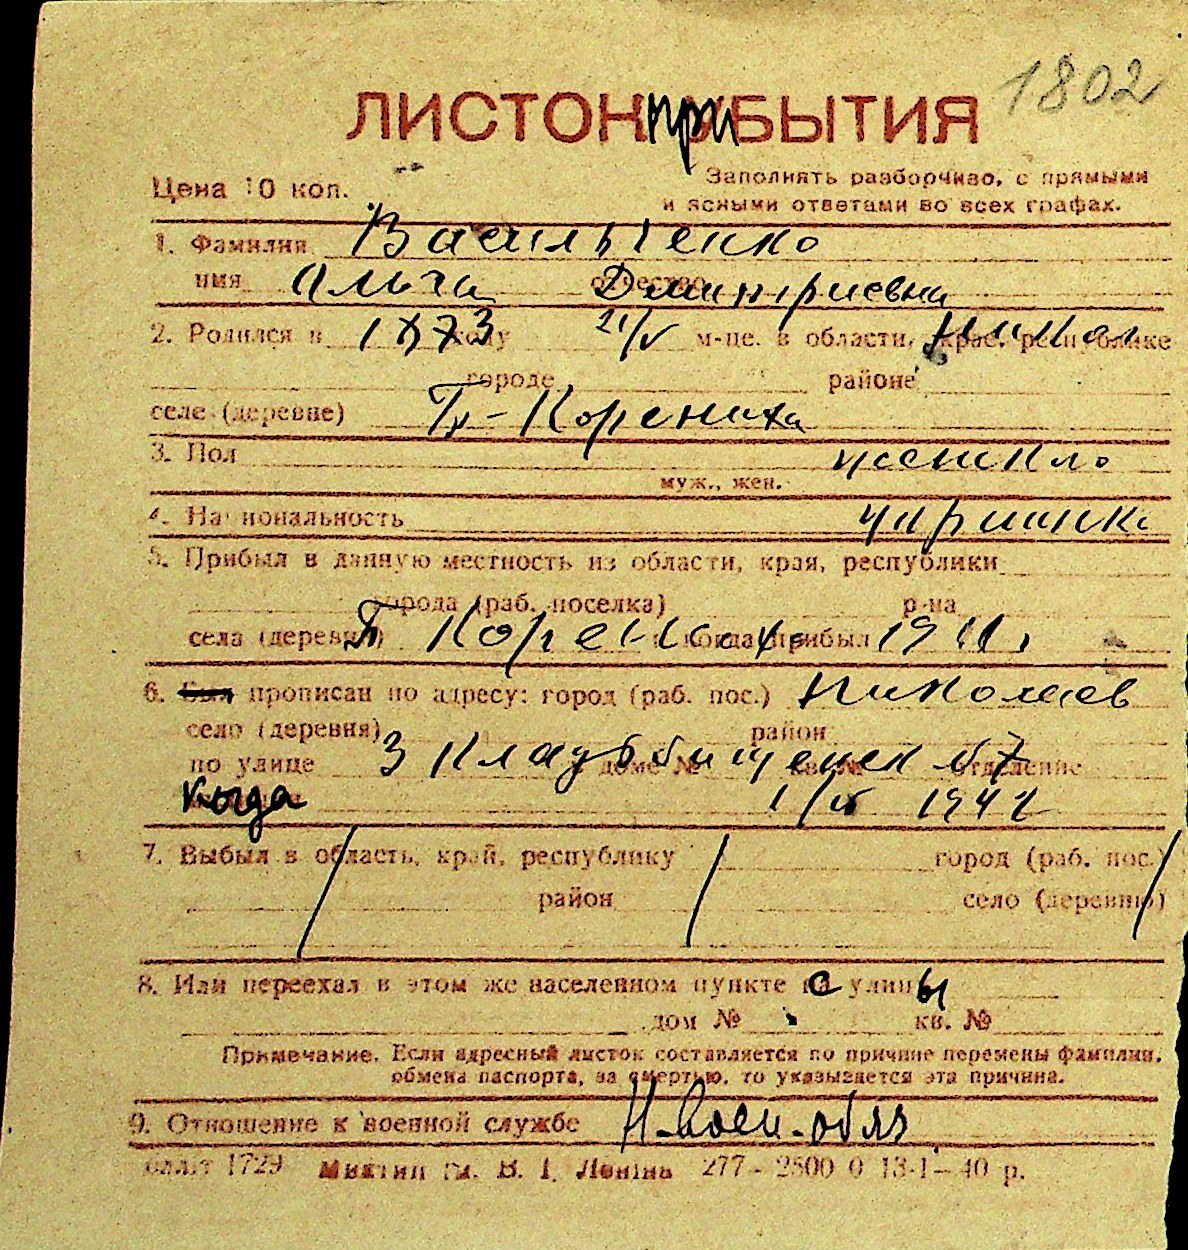 1802
ЛИСТОК ПРИБЫТИЯ
Цена 10 коп.
Заполнять разборчиво, с прямыми
и ясными ответами во всех графах.
1. Фамилия Васильченко
имя Ольга отчество Дмитриевна
2. Родился в 1873 году 21/V м-це. в области, крае, республике Никол
городе районе
селе (деревне) Корениха
3. Пол женикло
муж., жен.
4. Национальность
5. Прибыл в данную местность из области, края, республики
города (раб. поселка) р-на
села (деревни) Корениха и когда прибыл 1941
6. Был прописан по адресу: город (раб. пос.) Николаев
село (деревня) район
по улице 3 Кладбищенск 67 доме № кв. № отделение
Когда 1/IV 1942
7. Выбыл в область, край, республику город (раб. пос.)
район село (деревню)
8. Или переехал в этом же населенном пункте с улицы
дом № кв. №
Примечание. Если адресный листок составляется по причине перемены фамилии,
обмена паспорта, за смертью, то указывается эта причина.
9. Отношение к военной службе Н-воен-обяз
1729 В. І. Леніна 277 - 2500 0 13-1 - 40 р.